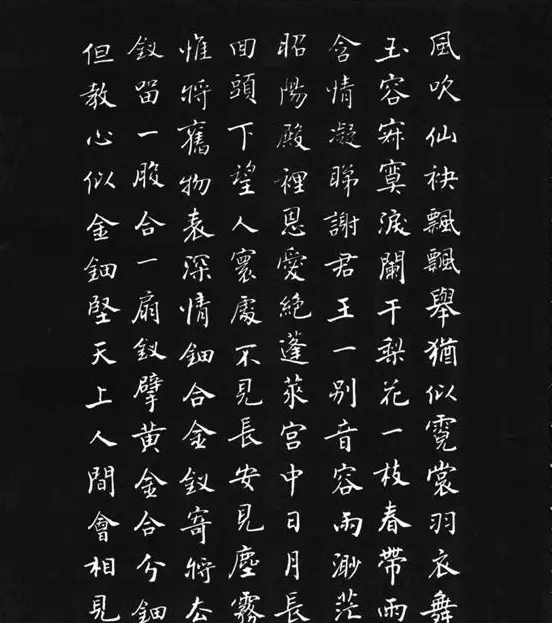 風吹仙袂飄飄舉猶似霓裳羽衣舞
玉容寂寞淚闌干梨花一枝春帶雨
含情凝睇謝君王一別音容兩渺茫
昭陽殿裡恩愛絕蓬萊宮中日月長
回頭下望人寰處不見長安見塵霧
惟將舊物表深情鈿合金釵寄將去
釵留一股合一扇釵擘黃金合分鈿
但教心似金鈿堅天上人間會相見